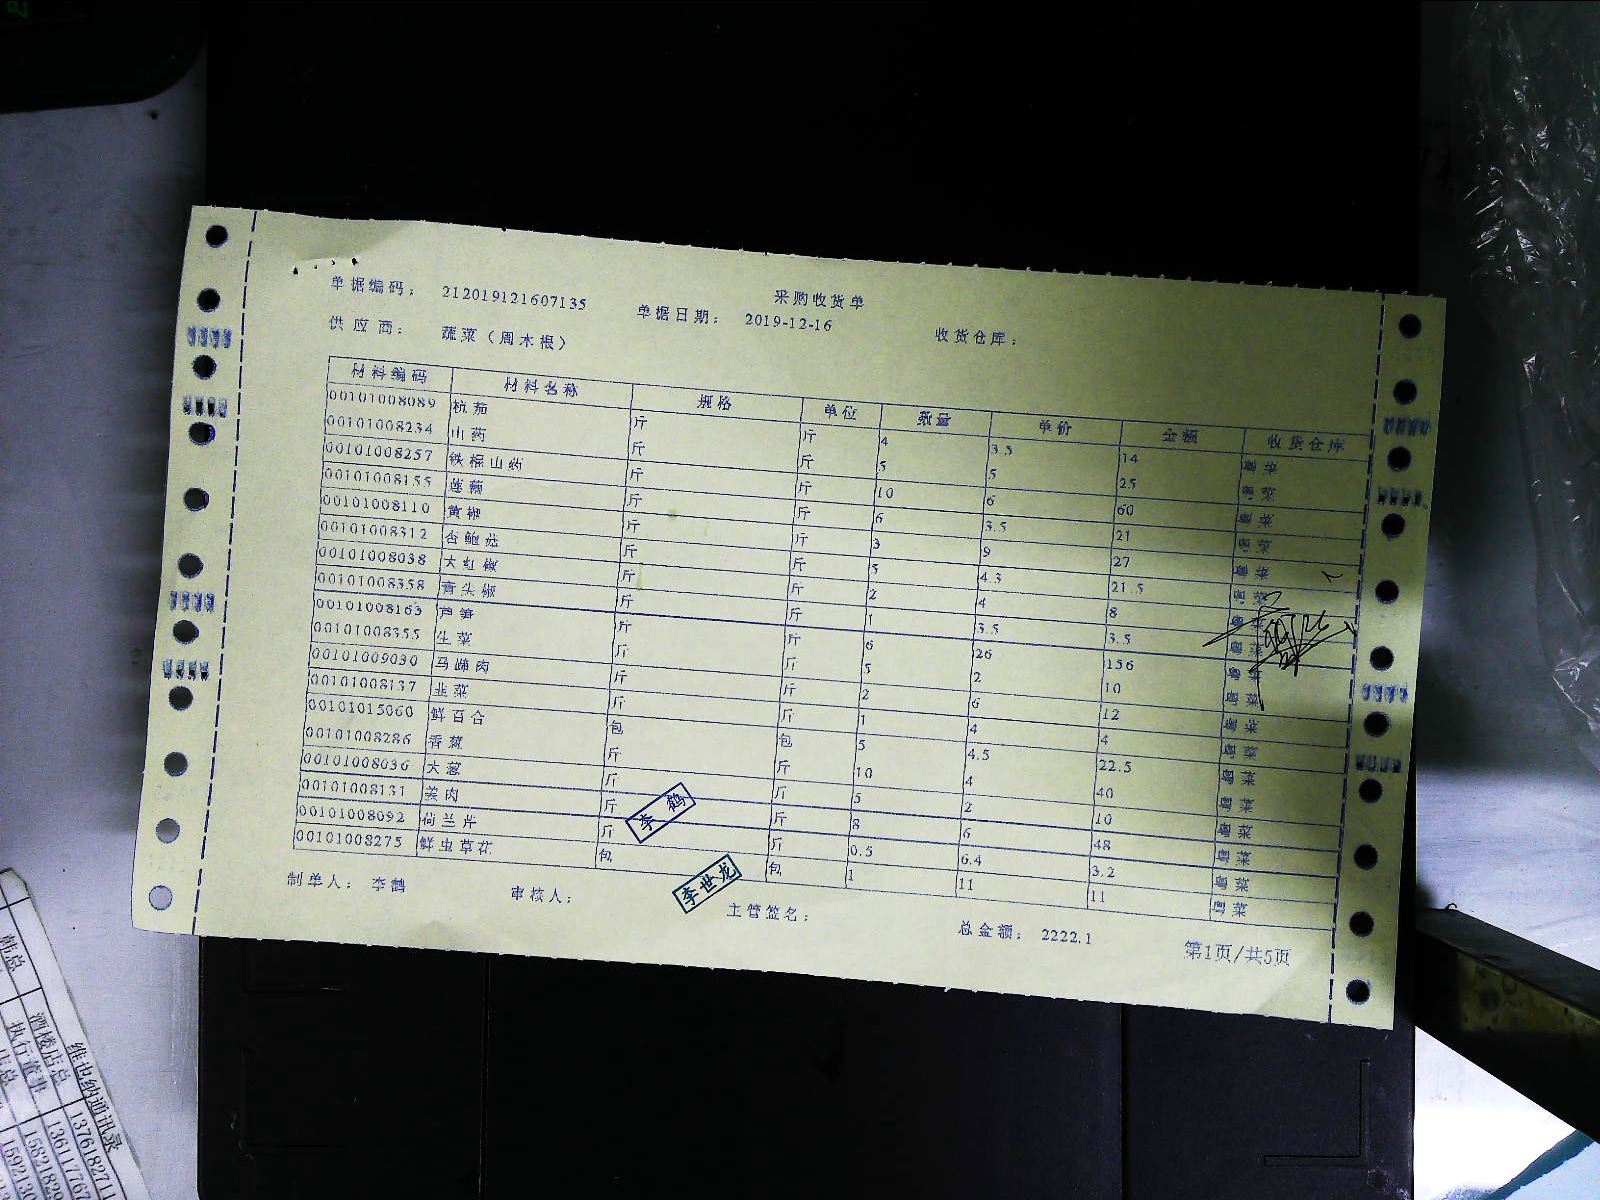 采购收货单
单据编码： 212019121607135 单据日期： 2019-12-16 收货仓库：
供应商： 蔬菜（周木根）
材料编码 材料名称 规格 单位 数量 单价 金额 收货仓库
00101008089 杭茄 斤 斤 4 3.5 14 粤菜
00101008234 山药 斤 斤 5 5 25 粤菜
00101008257 铁棍山药 斤 斤 10 6 60 粤菜
00101008155 莲藕 斤 斤 6 3.5 21 粤菜
00101008110 黄椒 斤 斤 3 9 27 粤菜
00101008312 杏鲍菇 斤 斤 5 4.3 21.5 粤菜
00101008038 大红椒 斤 斤 2 4 8 粤菜
00101008358 青头椒 斤 斤 1 3.5 3.5 粤菜
00101008163 芦笋 斤 斤 6 26 156 粤菜
00101008355 生菜 斤 斤 5 2 10 粤菜
00101009030 马蹄肉 斤 斤 2 6 12 粤菜
00101008137 韭菜 斤 斤 1 4 4 粤菜
00101015060 鲜百合 包 包 5 4.5 22.5 粤菜
00101008286 香葱 斤 斤 10 4 40 粤菜
00101008036 大葱 斤 斤 5 2 10 粤菜
00101008131 美肉 斤 斤 8 6 48 粤菜
00101008092 荷兰芹 斤 斤 0.5 6.4 3.2 粤菜
00101008275 鲜虫草花 包 包 1 11 11 粤菜
李鹤
李世龙
制单人： 李鹤 审核人： 主管签名： 总金额： 2222.1 第1页/共5页
维也纳通讯录
韩总
酒楼店总 13761827
执行董事 13611767
店总 15821829
1592130